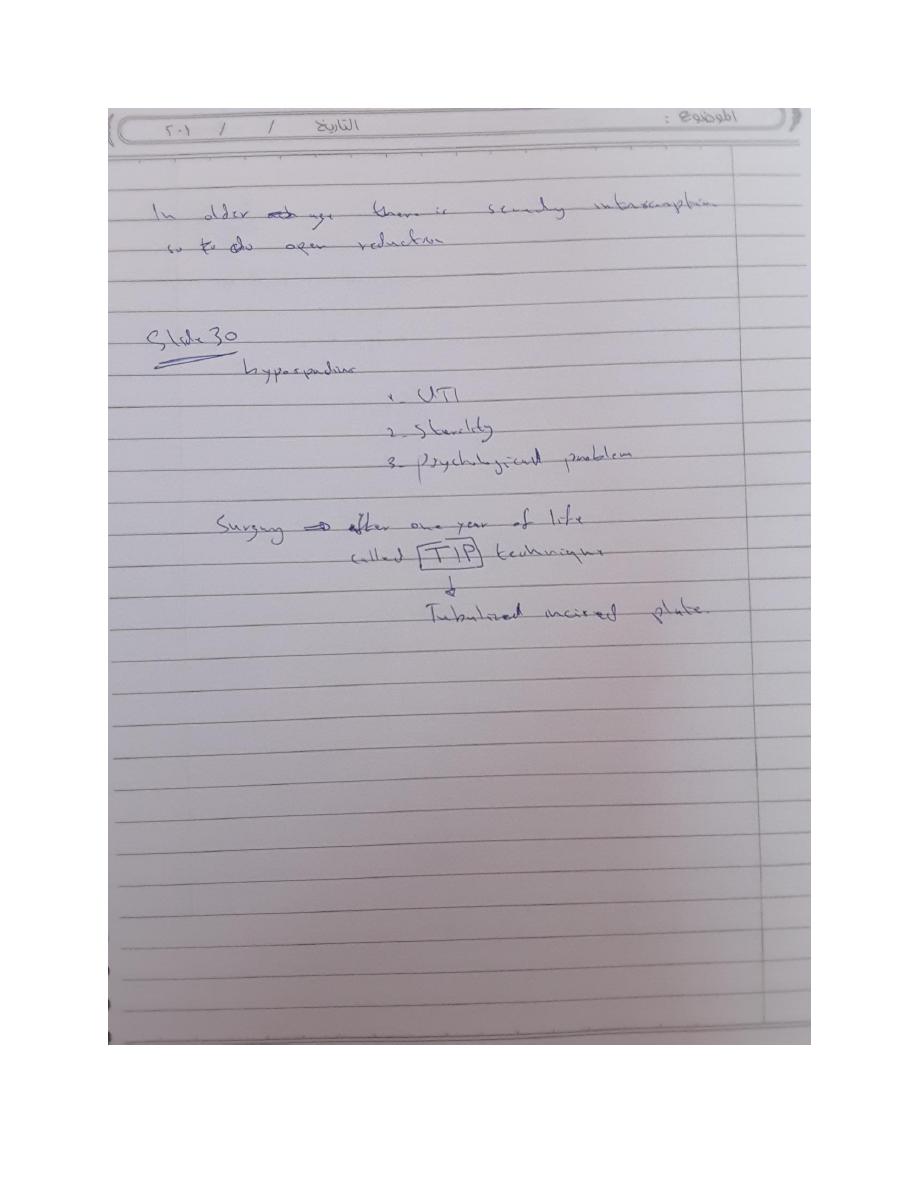 الموضوع : التاريخ / / ٢٠١
In older age there is secondary intussusception
so to do open reduction
Slide 30
hypospadias
1- UTI
2- Sterility
3- Psychological problem
Surgery ⇒ after one year of life
called TIP technique
↓
Tubulized incised plate.